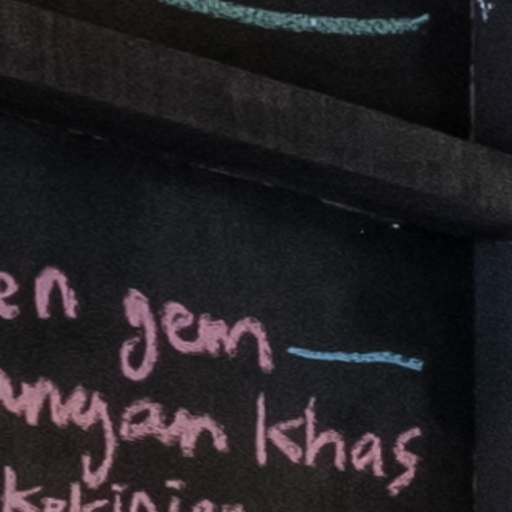 en gem
ungan khas
kekinian